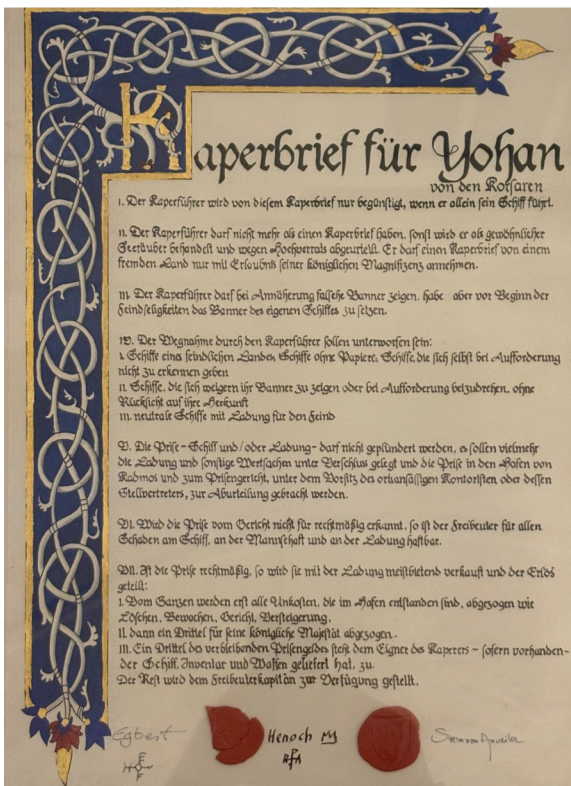 Kaperbrief für Yohan
von den Korsaren
I. Der Kaperführer wird von diesem Kaperbrief nur begünstigt, wenn er allein sein Schiff führt.
II. Der Kaperführer darf nicht mehr als einen Kaperbrief haben, sonst wird er als gewöhnlicher
Seeräuber behandelt und wegen Hochverrats abgeurteilt. Er darf einen Kaperbrief von einem
fremden Land nur mit Erlaubnis seiner königlichen Magnifizenz annehmen.
III. Der Kaperführer darf bei Annäherung falsche Banner zeigen, habe aber vor Beginn der
Feindseligkeiten das Banner des eigenen Schiffes zu setzen.
IV. Der Wegnahme durch den Kaperführer sollen unterworfen sein:
I. Schiffe eines feindlichen Landes, Schiffe ohne Papiere, Schiffe, die sich selbst bei Aufforderung
nicht zu erkennen geben
II. Schiffe, die sich weigern ihr Banner zu zeigen oder bei Aufforderung beizudrehen, ohne
Rücksicht auf ihre Herkunft
III. neutrale Schiffe mit Ladung für den Feind
V. Die Prise - Schiff und/oder Ladung - darf nicht geplündert werden, es sollen vielmehr
die Ladung und sonstige Wertsachen unter Verschluss gelegt und die Prise in den Hafen von
Kadmos und zum Prisengericht, unter dem Vorsitz des ortsansässigen Kontoristen oder dessen
Stellvertreters, zur Aburteilung gebracht werden.
VI. Wird die Prise vom Gericht nicht für rechtmäßig erkannt, so ist der Freibeuter für allen
Schaden am Schiff, an der Mannschaft und an der Ladung haftbar.
VII. Ist die Prise rechtmäßig, so wird sie mit der Ladung meistbietend verkauft und der Erlös
geteilt:
I. Vom Ganzen werden erst alle Unkosten, die im Hafen entstanden sind, abgezogen wie
Löschen, Bewachen, Gericht, Versteigerung,
II. dann ein Drittel für seine königliche Majestät abgezogen.
III. Ein Drittel des verbleibenden Prisengeldes steht dem Eigner des Kaperers - sofern vorhanden -
der Schiff, Inventar und Waffen geliefert hat, zu.
Der Rest wird dem Freibeuterkapitän zur Verfügung gestellt.
Egbert Henoch